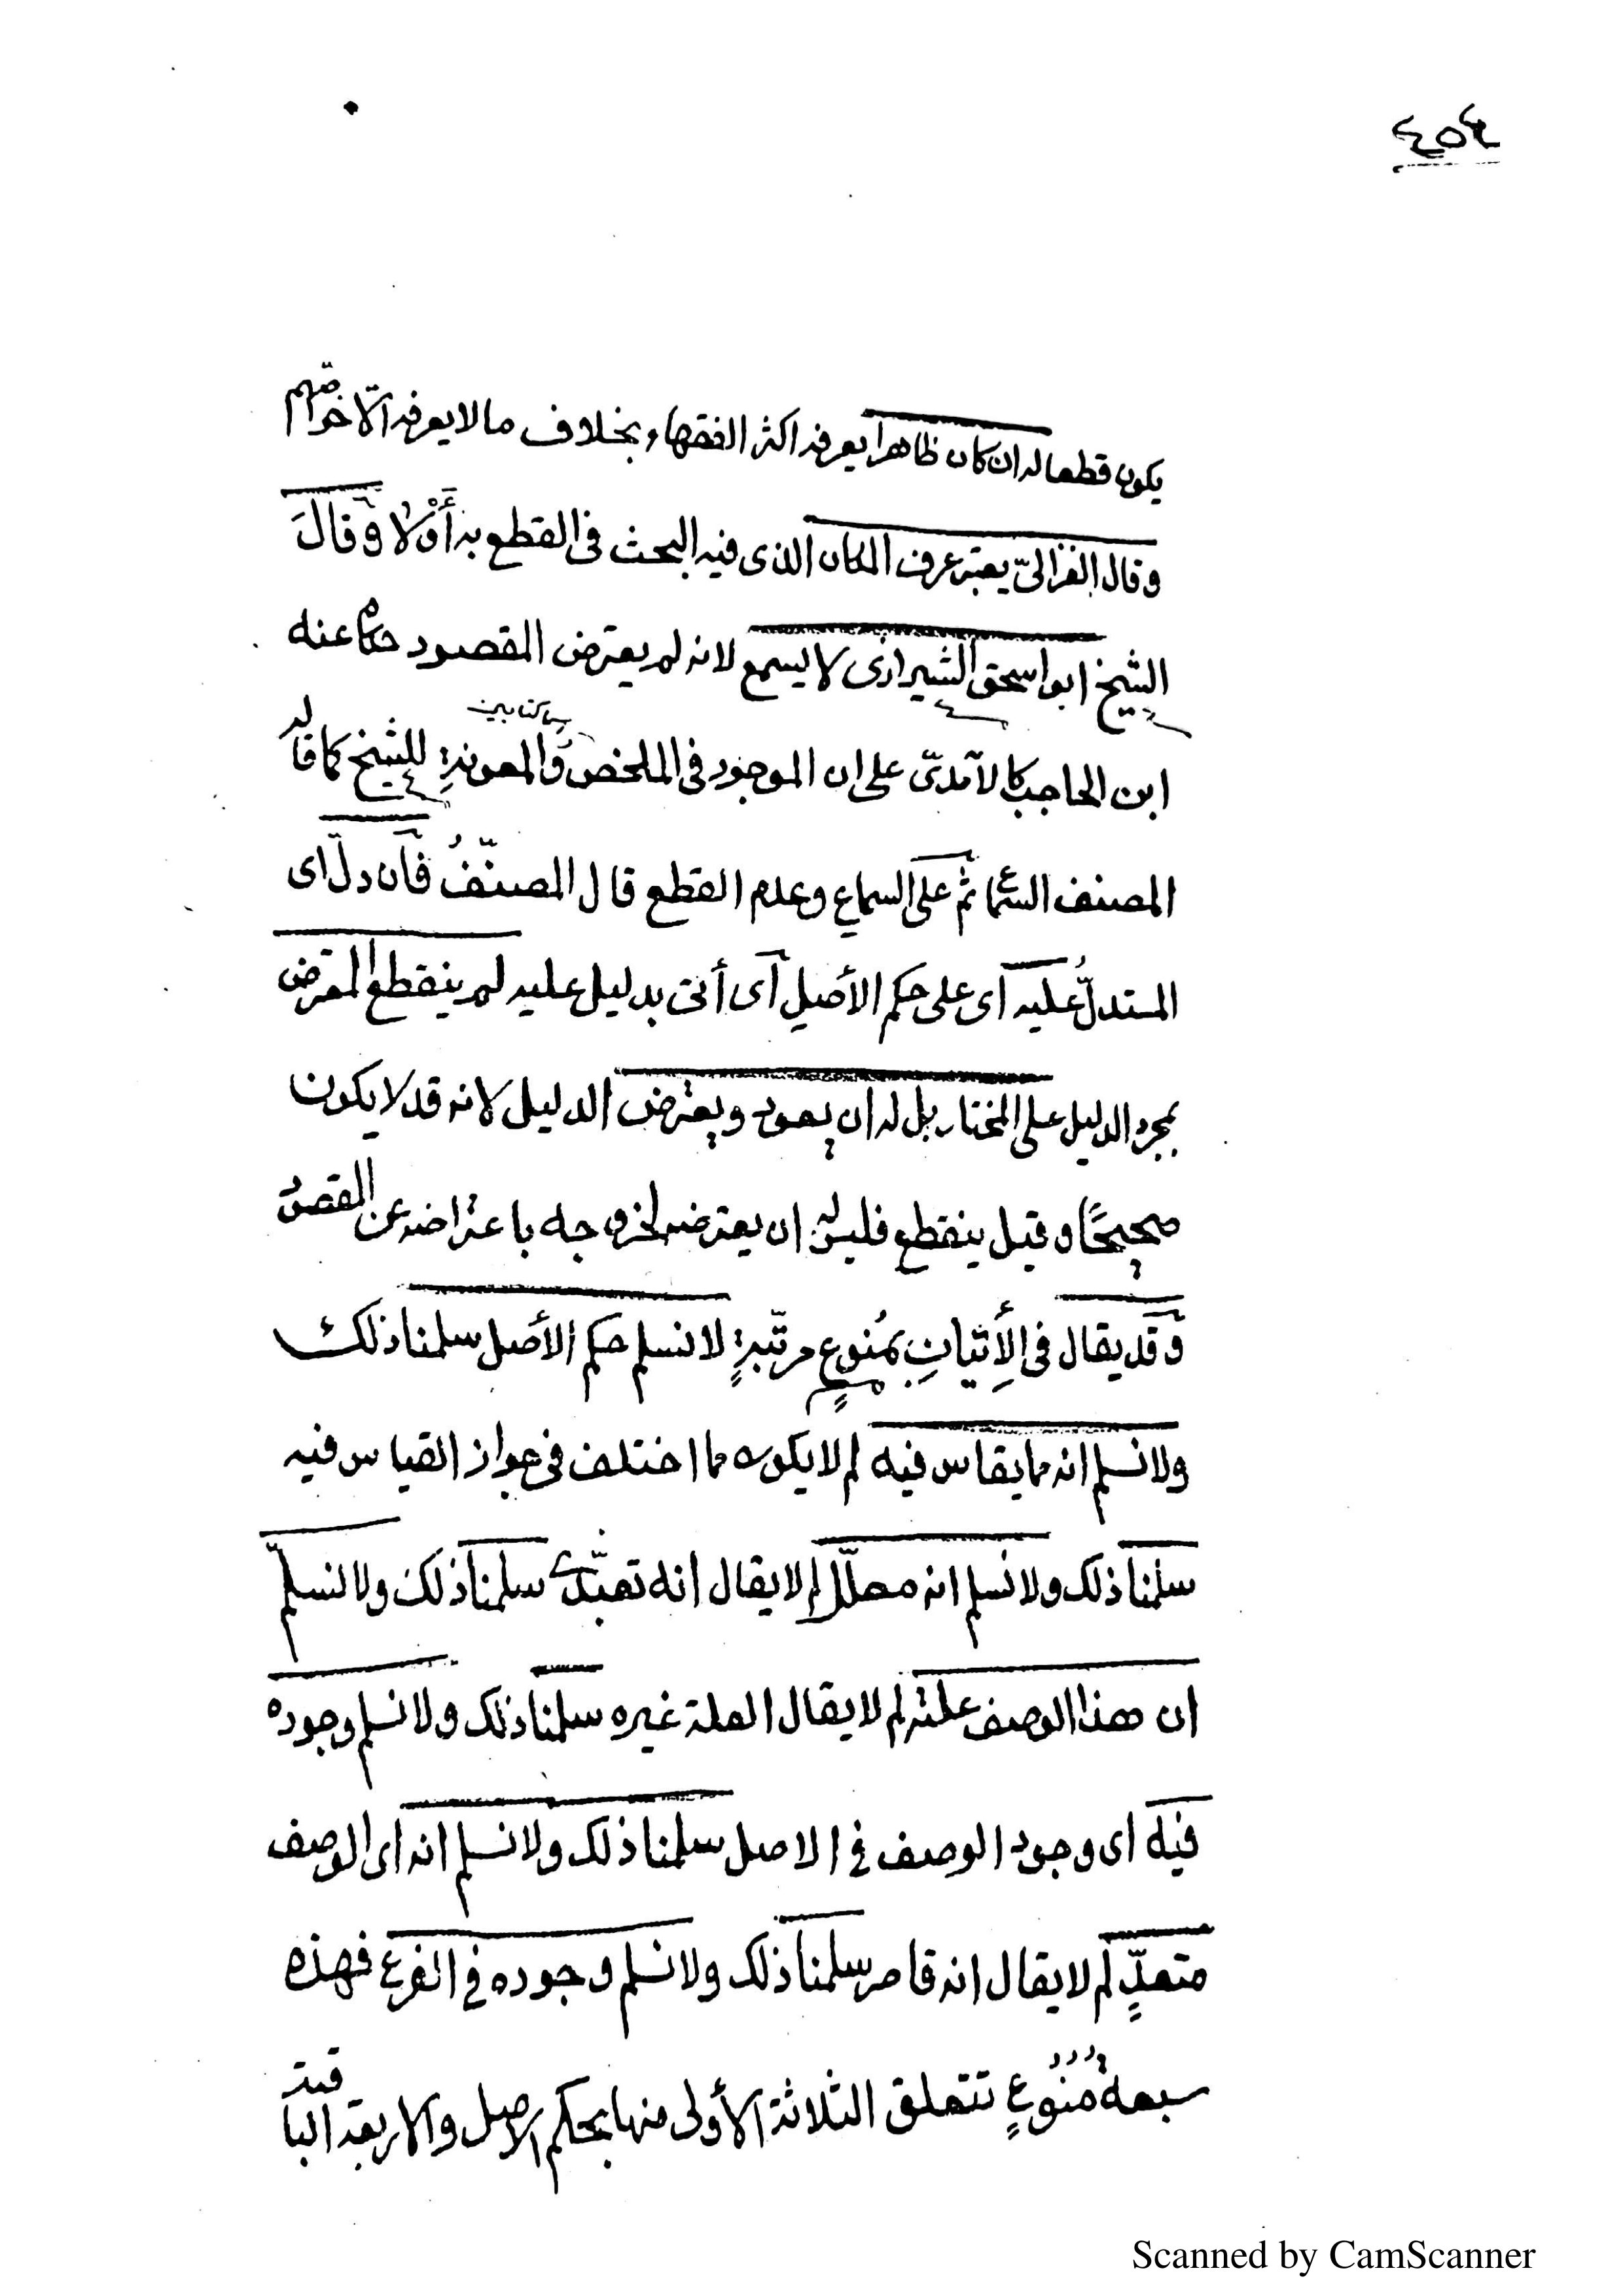 ٤٥٤
يكون قطعا له ان كان ظاهرا يعرفه اكثر الفقهاء بخلاف ما لا يعرفه الّا خواصّهم
وقال الغزالىّ يعتبر عرف المكان الذى فيه البحث فى القطع به أَوْ لا وَقالَ
الشيخ ابو اسحق الشيرازى لا يسمع لانه لم يعترض المقصود حكاه عنه
ابن الحاجب كالآمدىّ على ان الموجود فى الملخص وَالمعونةِ للشيخ كما قاله
كتابين
المصنف السماع ثم على السماع وعدم القطع قال المصنّفُ فان دلّ اى
المستدلُّ عليه اى على حكم الأصل اى أتى بدليل عليه لم ينقطع المعترض
بمجرد الدليل على المختار بل له ان يعود ويعترض الدليل لانه قد لا يكون
صحيحًا وقيل ينقطع فليس له ان يعترضه لخروجه باعتراضه عن المقصود
وَقد يقال فى الِأتيانِ بمُنوعٍ مرتّبةٍ لا نسلم حكم الأصل سلمنا ذلك
ولا نسلم انه مما يقاس فيه لم لا يكون مما اختلف فى جواز القياس فيه
سلمنا ذلك ولا نسلم انه معلّل لم لا يقال انه تعبّدىّ سلمنا ذلك ولا نسلمّ
ان هذا الوصف علته لم لا يقال العلة غيره سلمنا ذلك ولا نسلم وجوده
فيه اى وجود الوصف فى الاصل سلمنا ذلك ولا نسلم انه اى الوصف
متعدٍّ لم لا يقال انه قاصر سلمنا ذلك ولا نسلم وجوده فى الفرع فهذه
سبعة مُنُوعٍ تتعلق الثلاثة الأولى منها بحكم الاصل والاربعة الباقية
Scanned by CamScanner